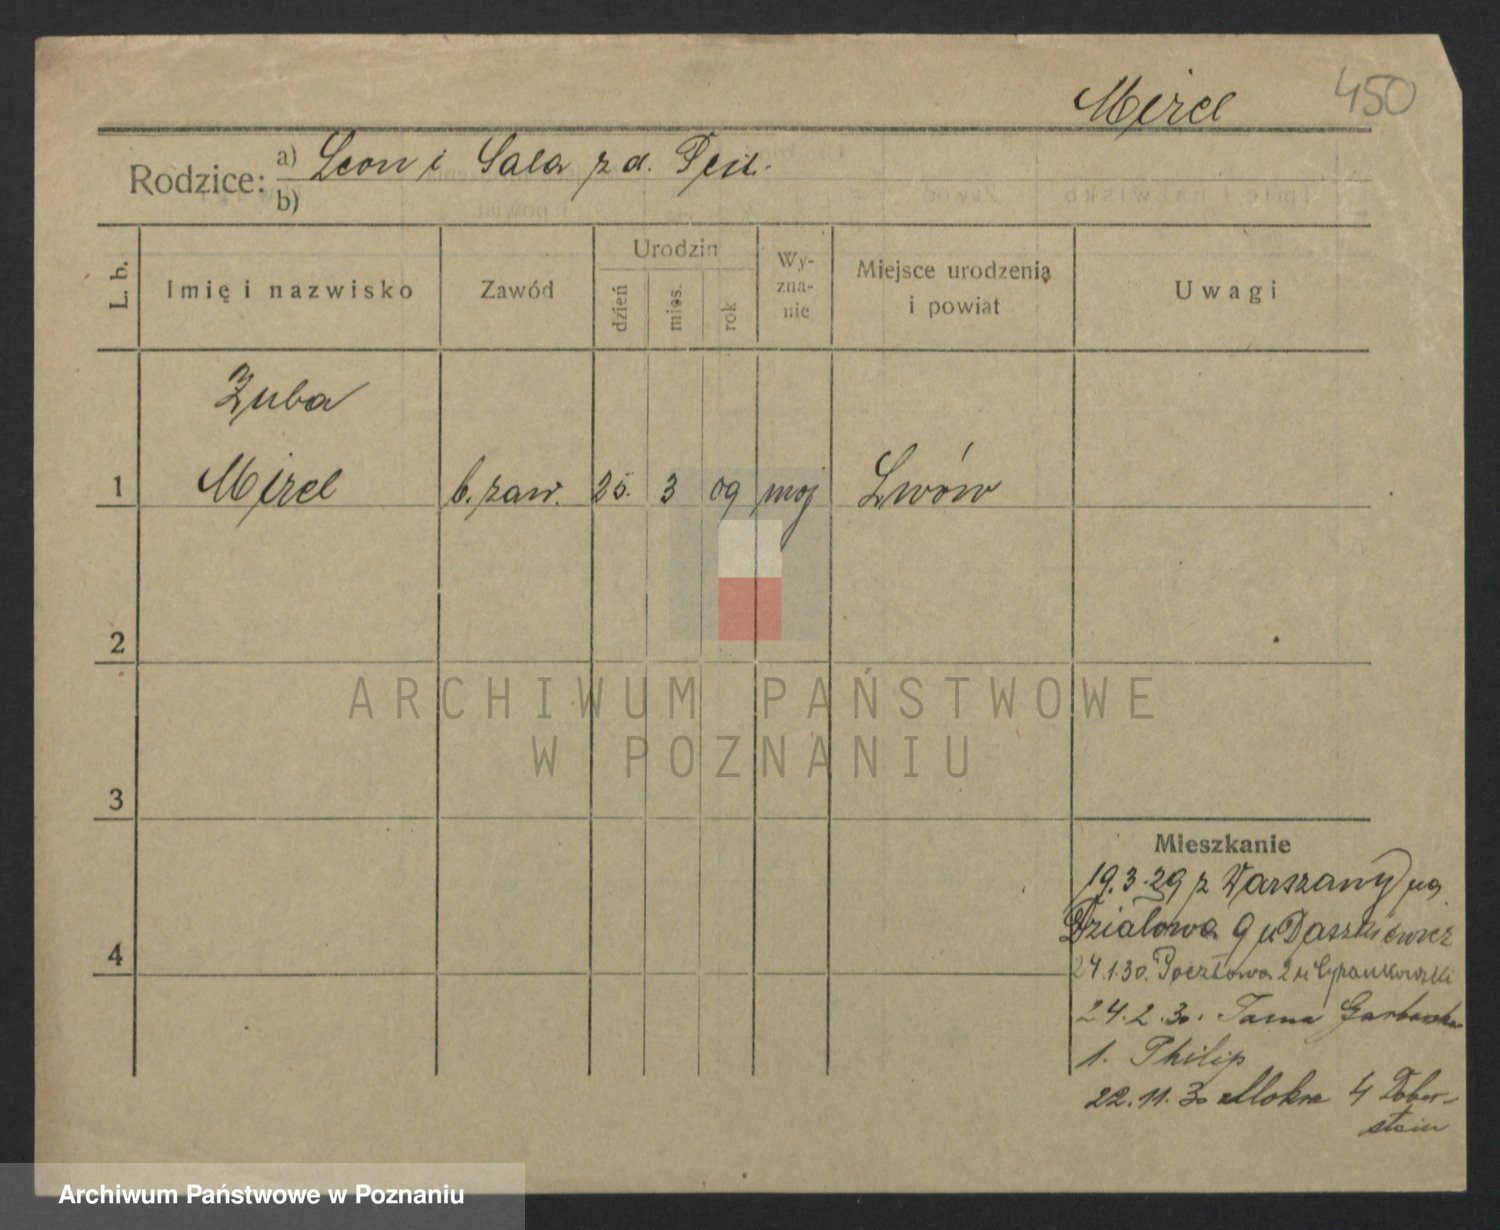 Mirel 450
Rodzice: a) Leon i Sala z d.
b)
L. b. Imię i nazwisko Zawód Urodzin dzień mies. rok Wy-zna-nie Miejsce urodzenia i powiat Uwagi
Zuba
1 Mirel b. zaw. 25. 3 09 moj Lwów
2
3
4
Mieszkanie
19.3.29 z Warszawy na
Działowa 9 u Daszkiewicz
24.1.30. Pocztowa 2 u Cyrankowski
24.2.30. Tama Garbarska
1. Philip
22.11.30 Mokra 4 Dober-
stein
ARCHIWUM PAŃSTWOWE
W POZNANIU
Archiwum Państwowe w Poznaniu